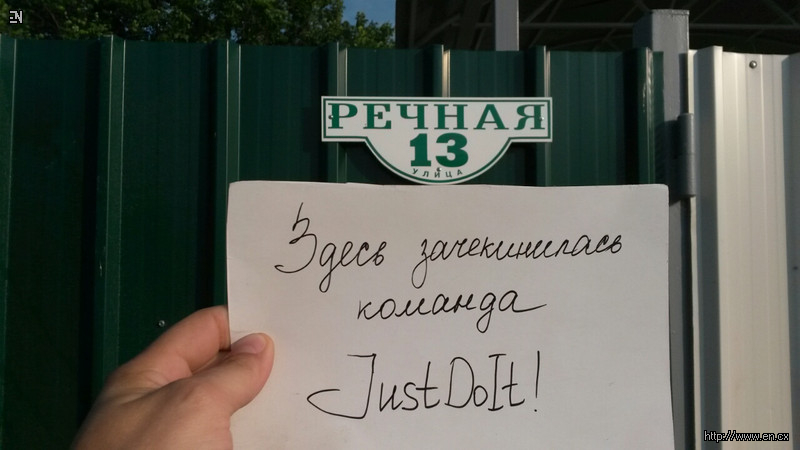 EN
РЕЧНАЯ
13
УЛИЦА
Здесь зачекинилась
команда
JustDoIt!
http://www.en.cx